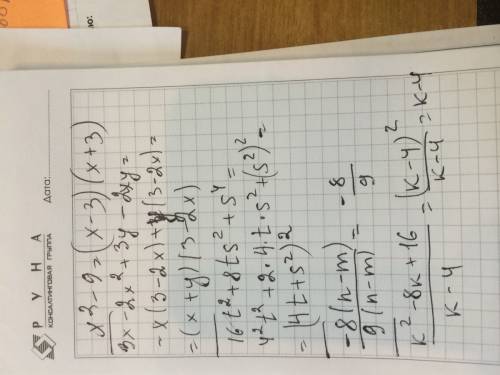 РУНА
КОНСАЛТИНГОВАЯ ГРУППА
Дата:
x² - 9 = (x - 3)(x + 3)
3x - 2x² + 3y - 2xy =
= x(3 - 2x) + y(3 - 2x) =
= (x + y)(3 - 2x)
16t² + 8ts² + s⁴ =
4²t² + 2·4·t·s² + (s²)² =
= (4t + s²)²
-8(n-m)/9(n-m) = -8/9
k² - 8k + 16/k - 4 = (k - 4)²/k - 4 = k - 4